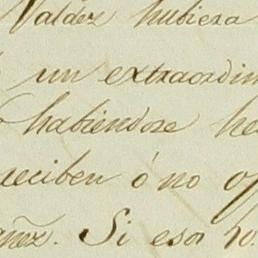 Valdez hubiera
un extraordin
habiendose he
reciben ó no of
añez. Si esos ho